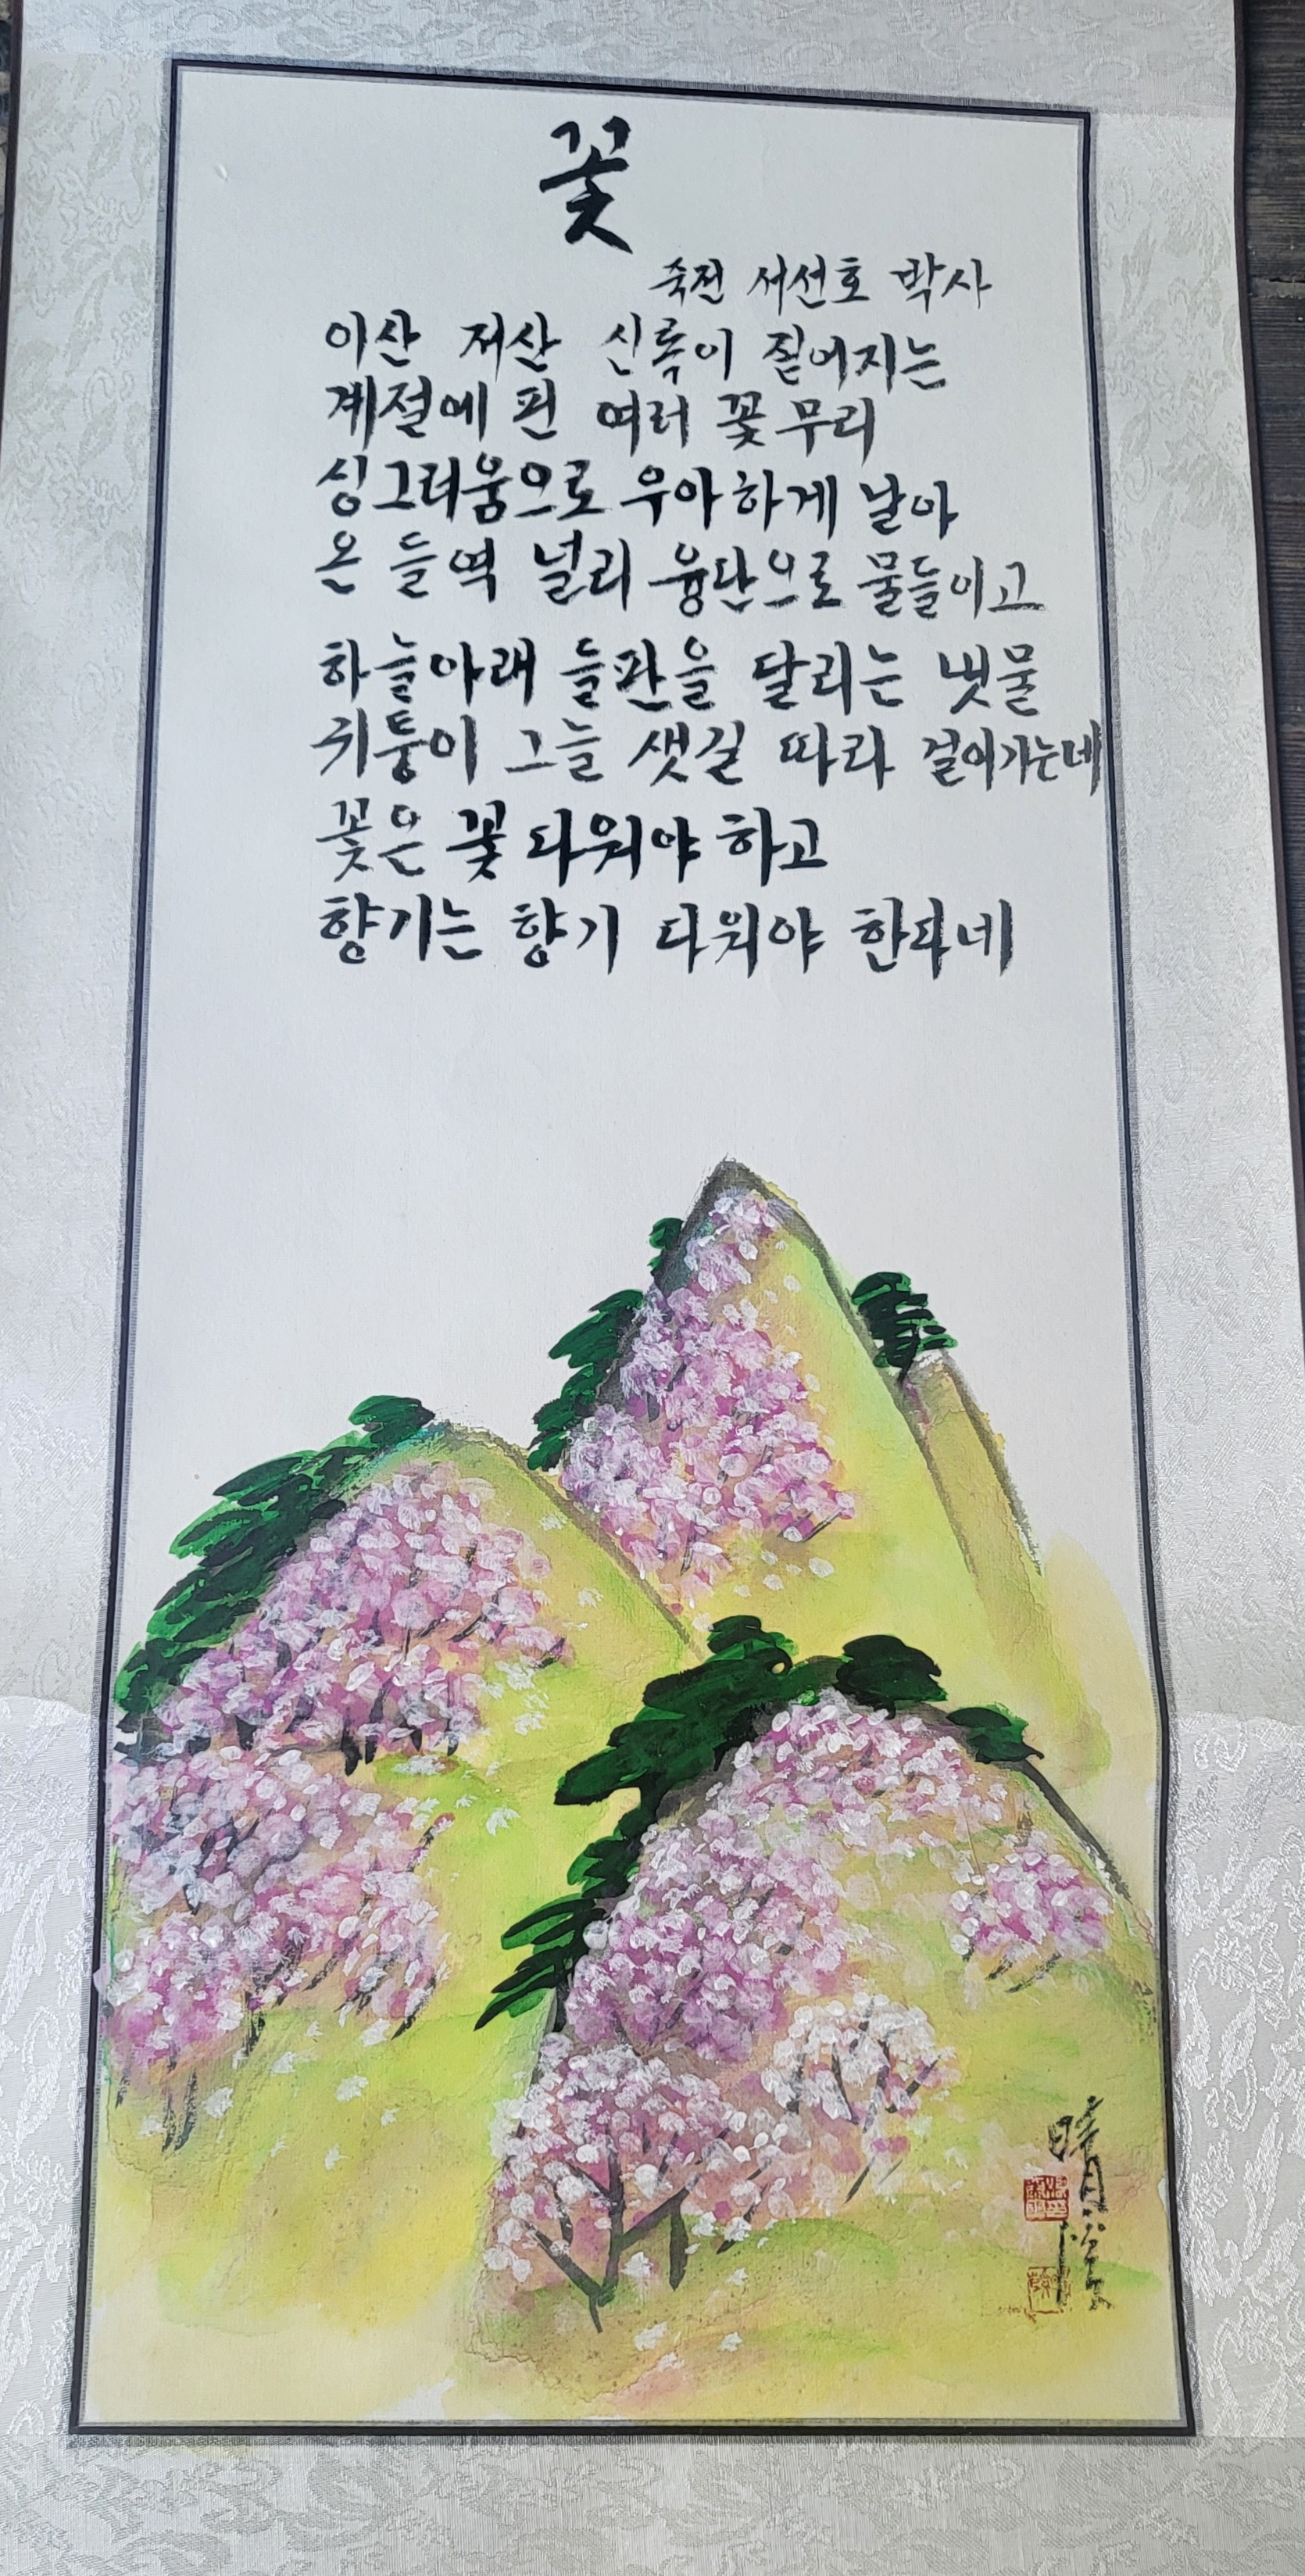 꽃
죽전 서선호 박사
이산 저산 신록이 짙어지는
계절에 핀 여러 꽃무리
싱그러움으로 우아하게 날아
온 들역 널리 융단으로 물들이고
하늘아래 들판을 달리는 냇물
귀퉁이 그늘 샛길 따라 걸어가는데
꽃은 꽃 다워야 하고
향기는 향기 다워야 한다네
晴